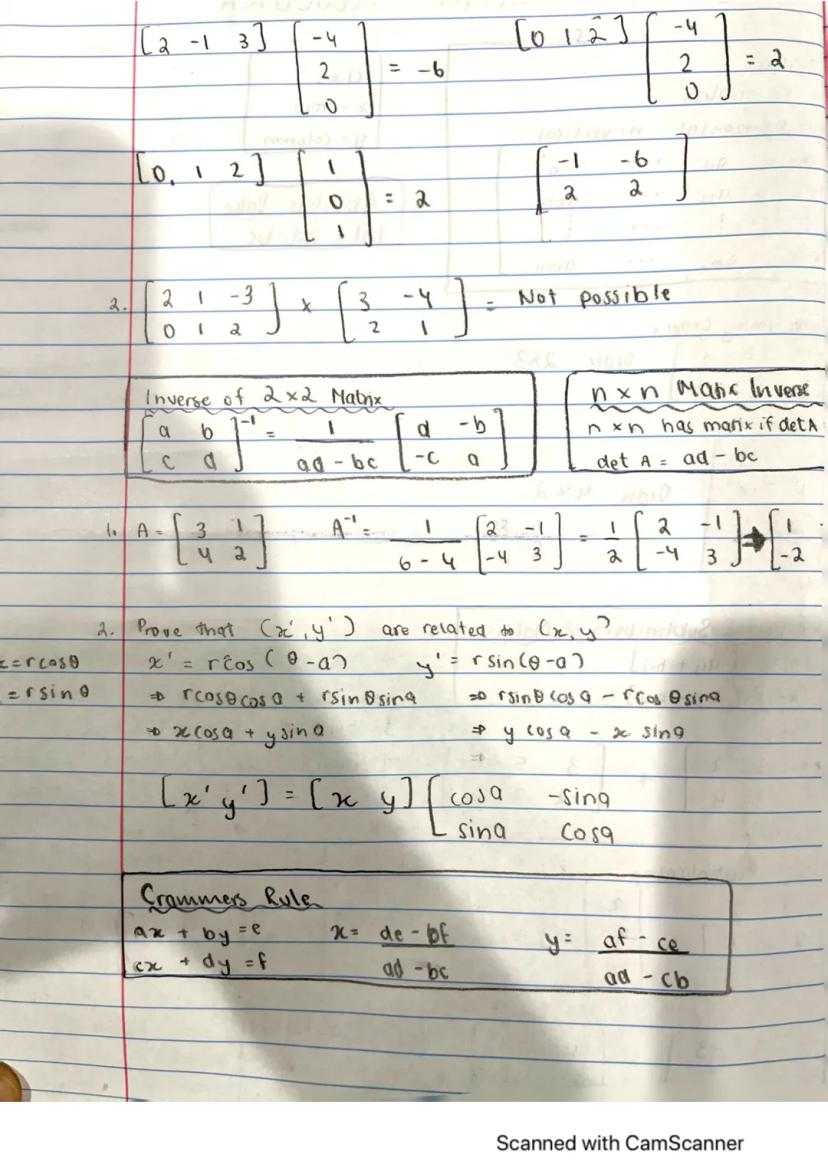 [2 -1 3] [-4 2 0] = -6 [0 1 2] [-4 2 0] = 2
[0, 1 2] [1 0 1] = 2 [-1 -6
2 2]
2. [2 1 -3 × [3 -4 = Not possible
0 1 2] 2 1]
Inverse of 2×2 Matrix
[a b
c d]⁻¹ = 1 / ad - bc [d -b
-c a]
n × n Matix Inverse
n × n has matix if det A
det A = ad - bc
1. A = [3 1 A⁻¹ = 1 / 6 - 4 [2 -1 = 1/2 [2 -1 → [1
4 2] -4 3] -4 3] -2
2. Prove that (x', y') are related to (x, y)
x = rcosθ x' = rcos (θ - a) y' = rsin(θ-a)
= rsinθ ⇒ rcosθcosa + rsinθsina ⇒ rsinθcosa - rcosθsina
⇒ xcosa + ysina ⇒ y cosa - x sina
⇒
[x' y'] = [x y] [cosa -sina
sina cosa
Crammers Rule
ax + by = e x = de - bf / ad - bc y = af - ce / ad - cb
cx + dy = f
Scanned with CamScanner